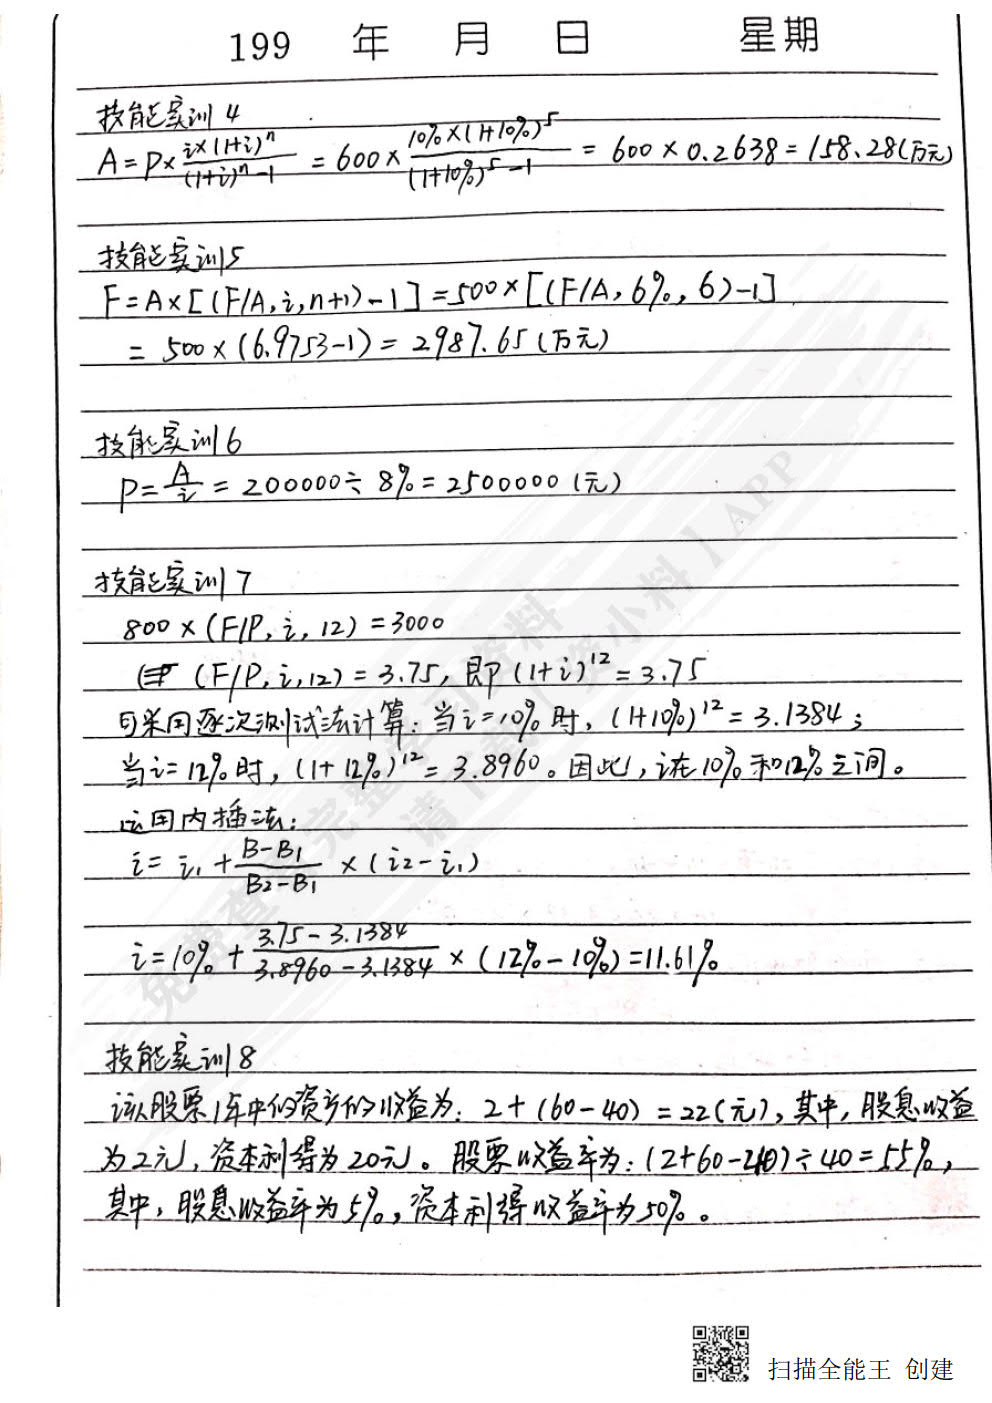 199 年 月 日 星期
技能实训4
A=P×\frac{i×(1+i)^n}{(1+i)^n-1} =600×\frac{10%×(1+10%)^5}{(1+10%)^5-1} = 600×0.2638=158.28(万元)
技能实训5
F=A×[(F/A,i,n+1)-1]=500×[(F/A,6%,6)-1]
=500×(6.9753-1)=2987.65(万元)
技能实训6
P=\frac{A}{i}=200000÷8%=2500000(元)
技能实训7
800×(F/P,i,12)=3000
(F/P,i,12)=3.75,即(1+i)^12=3.75
可采用逐次测试法计算:当i=10%时,(1+10%)^12=3.1384;
当i=12%时,(1+12%)^12=3.8960。因此,i在10%和12%之间。
运用内插法:
i=i₁+\frac{B-B₁}{B₂-B₁}×(i₂-i₁)
i=10%+\frac{3.75-3.1384}{3.8960-3.1384}×(12%-10%)=11.61%
技能实训8
该股票1年中的资产的收益为:2+(60-40)=22(元),其中,股息收益
为2元,资本利得为20元。股票收益率为:(2+60-40)÷40=55%,
其中,股息收益率为5%,资本利得收益率为50%。
免费查看完整学习资料
请下载 资小料 | APP
扫描全能王 创建